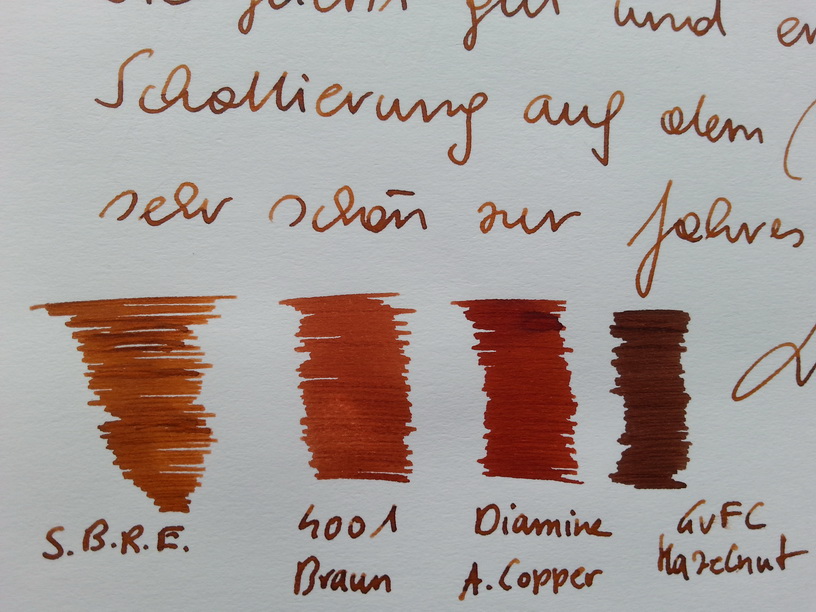 gut und
Schattierung auf dem (
sehr schön zur Jahres
S.B.R.E.
4001
Braun
Diamine
A.Copper
GvFC
Hazelnut